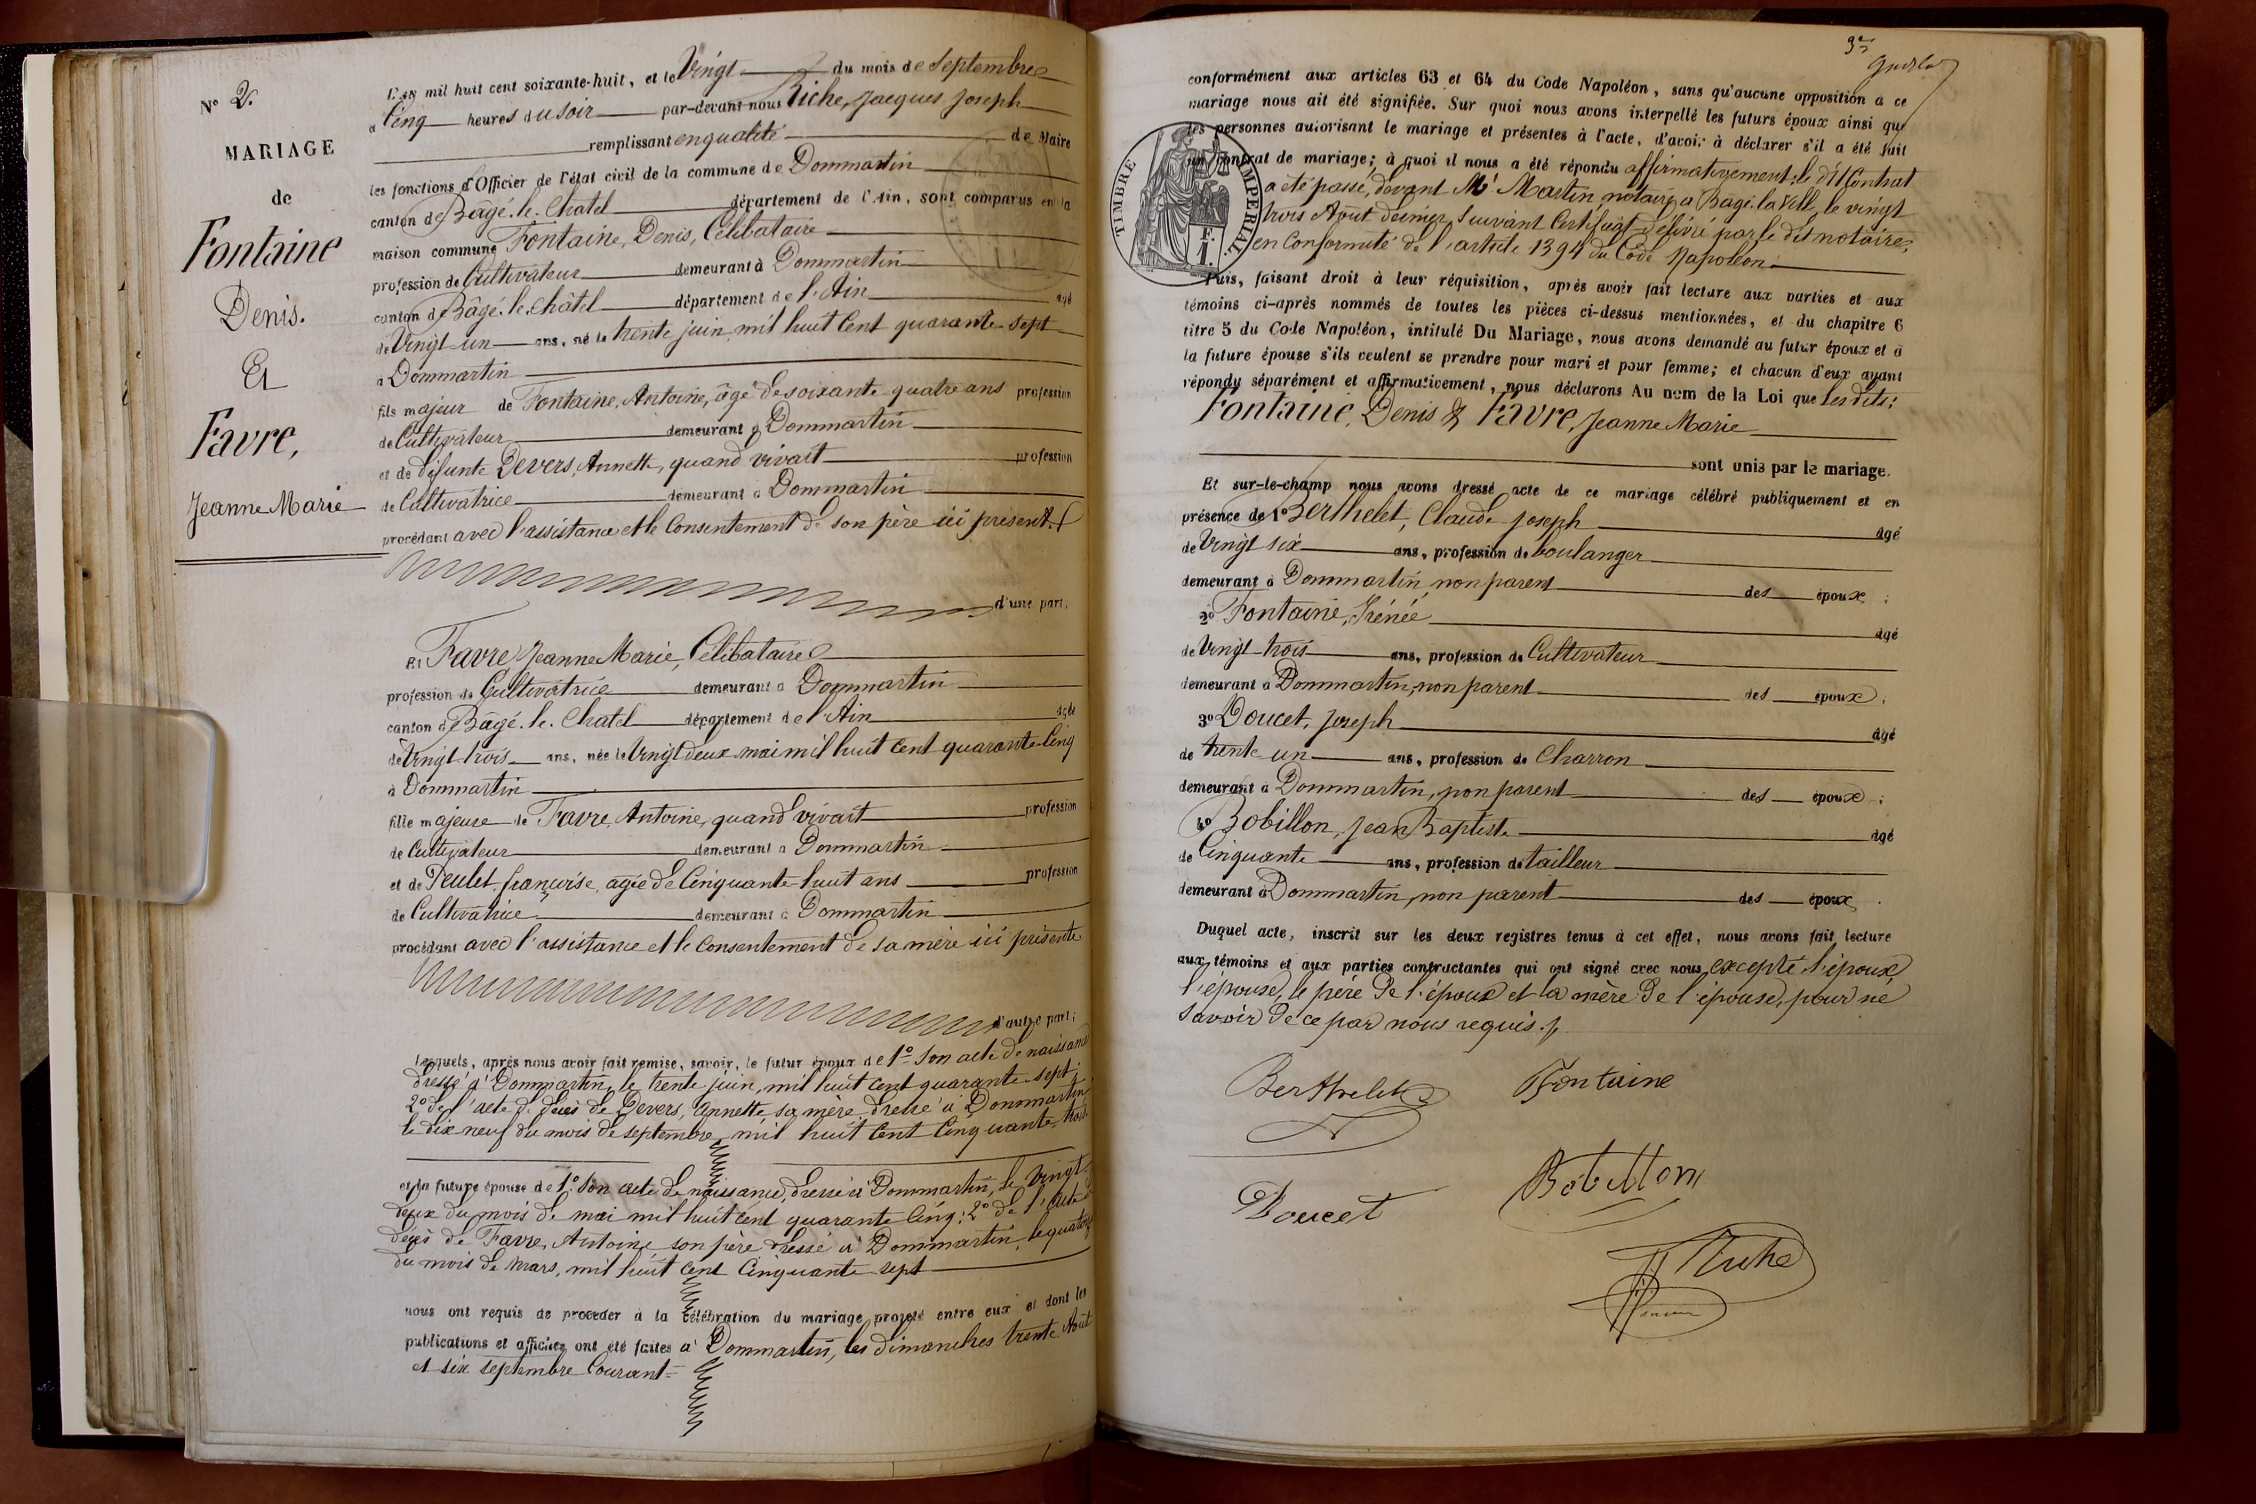 N° 2.
MARIAGE
de
Fontaine
Denis.
Et
Favre,
Jeanne Marie
L'an mil huit cent soixante-huit, et le Vingt du mois de Septembre
à Cinq heures du soir par-devant nous Riche, Jacques Joseph
remplissant en qualité de Maire
les fonctions d'Officier de l'état civil de la commune de Dommartin
canton de Bâgé-le-Chatel département de l'Ain, sont comparus en la
maison commune Fontaine, Denis, Célibataire
profession de Cultivateur demeurant à Dommartin
canton de Bâgé-le-Châtel département de l'Ain agé
de Vingt-un ans, né le trente juin mil huit Cent quarante-sept
à Dommartin
fils majeur de Fontaine, Antoine, âgé de soixante-quatre ans profession
de Cultivateur demeurant à Dommartin
et de défunte Devers, Annette, quand vivait profession
de Cultivatrice demeurant à Dommartin
procédant avec l'assistance et le Consentement de son père ici présent
d'une part;
Et Favre, Jeanne Marie, Célibataire
profession de Cultivatrice demeurant à Dommartin
canton de Bâgé-le-Chatel département de l'Ain agée
de Vingt-trois ans, née le Vingt deux mai mil huit Cent quarante-Cinq
à Dommartin
fille majeure de Favre, Antoine, quand vivait profession
de Cultivateur demeurant à Dommartin
et de Peulet, françoise, agée de Cinquante-huit ans profession
de Cultivatrice demeurant à Dommartin
procédant avec l'assistance et le Consentement de sa mère ici présente
d'autre part;
Lesquels, après nous avoir fait remise, savoir, le futur époux de 1° Son acte de naissance
dressé à Dommartin, le trente juin, mil huit Cent quarante-sept;
2° de l'acte de décès de Devers, Annette, sa mère, dressé à Dommartin
le dix-neuf du mois de septembre, mil huit Cent Cinquante-trois
et la future épouse de 1° Son acte de naissance, dressé à Dommartin, le Vingt-
deux du mois de mai mil huit Cent quarante-Cinq; 2° de l'acte de
décès de Favre, Antoine son père dressé à Dommartin, le quatorze
du mois de Mars, mil huit Cent Cinquante-sept
nous ont requis de procéder à la célébration du mariage projeté entre eux et dont les
publications et affiches ont été faites à Dommartin, les dimanches trente Août
et six septembre Courant
conformément aux articles 63 et 64 du Code Napoléon, sans qu'aucune opposition à ce
mariage nous ait été signifiée. Sur quoi nous avons interpellé les futurs époux ainsi que
les personnes autorisant le mariage et présentes à l'acte, d'avoir à déclarer s'il a été fait
un contrat de mariage; à quoi il nous a été répondu affirmativement; le dit Contrat
TIMBRE IMPERIAL.
F.
1.
a été passé, devant Me Martin, notaire, à Bagé-la-Ville, le vingt
trois Août dernier, Suivant Certificat délivré par le dit notaire,
en Conformité de l'article 1394 du Code Napoléon.
Puis, faisant droit à leur réquisition, après avoir fait lecture aux parties et aux
témoins ci-après nommés de toutes les pièces ci-dessus mentionnées, et du chapitre 6
titre 5 du Code Napoléon, intitulé Du Mariage, nous avons demandé au futur époux et à
la future épouse s'ils veulent se prendre pour mari et pour femme; et chacun d'eux ayant
répondu séparément et affirmativement, nous déclarons Au nom de la Loi que les dits:
Fontaine, Denis & Favre, Jeanne Marie
sont unis par le mariage.
Et sur-le-champ nous avons dressé acte de ce mariage célébré publiquement et en
présence de 1° Berthelet, Claude Joseph agé
de Vingt six ans, profession de boulanger
demeurant à Dommartin, non parent des époux;
2° Fontaine, Irénée agé
de Vingt-trois ans, profession de Cultivateur
demeurant à Dommartin, non parent des époux;
3° Doucet, Joseph agé
de trente un ans, profession de Charron
demeurant à Dommartin, non parent des époux;
4° Bobillon, Jean Baptiste agé
de Cinquante ans, profession de tailleur
demeurant à Dommartin, non parent des époux.
Duquel acte, inscrit sur les deux registres tenus à cet effet, nous avons fait lecture
aux témoins et aux parties contractantes qui ont signé avec nous, excepté l'époux,
l'épouse, le père de l'époux et la mère de l'épouse, pour ne
Savoir de ce par nous requis.
Berthelet Fontaine
Doucet Bobillon
Riche